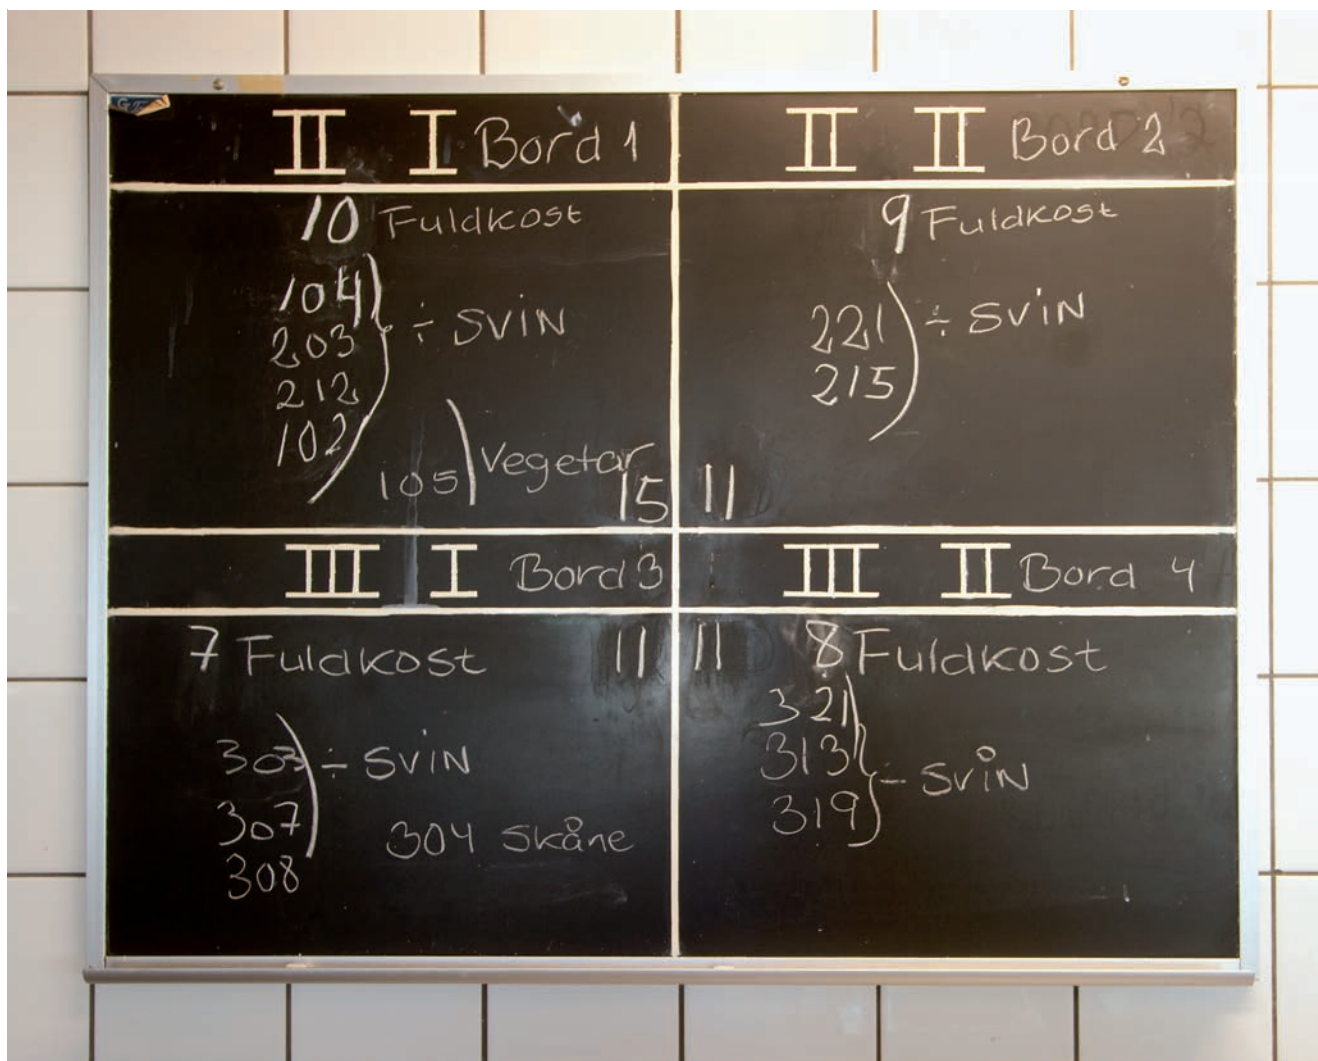 II I Bord 1
10 Fuldkost
104
203 ÷ SVIN
212
102
105 Vegetar
15
II II Bord 2
9 Fuldkost
221 ÷ SVIN
215
11
III I Bord 3
7 Fuldkost 11
303 ÷ SVIN
307
304 Skåne
308
III II Bord 4
11 8 Fuldkost
321
313
319 - SVIN